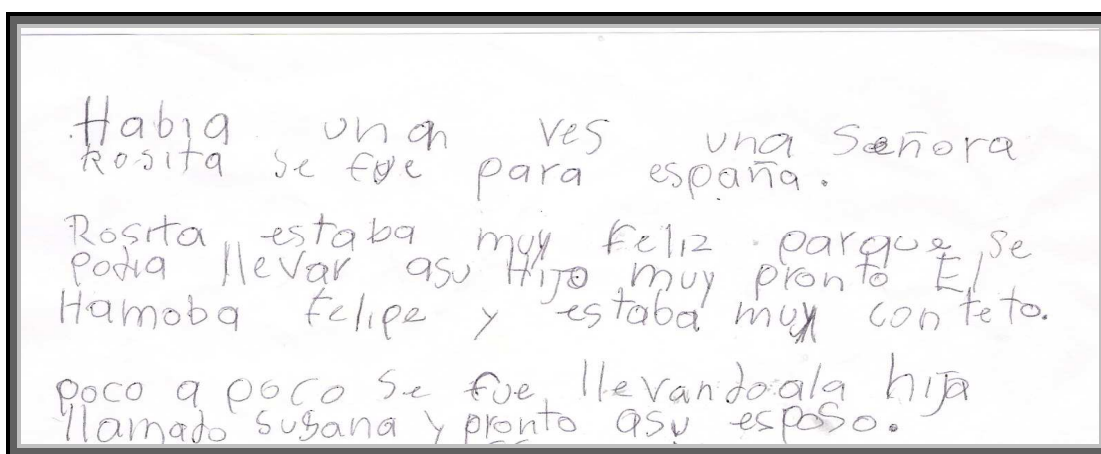 Habia unan ves una Señora
Rosita se fue para españa.
Rosita estaba muy Feliz parque se
podia llevar asu Hijo muy pronto El
Hamoba Felipe y estaba muy conteto.
poco a poco se fue llevandoala hija
llamado susana y pronto asu esposo.